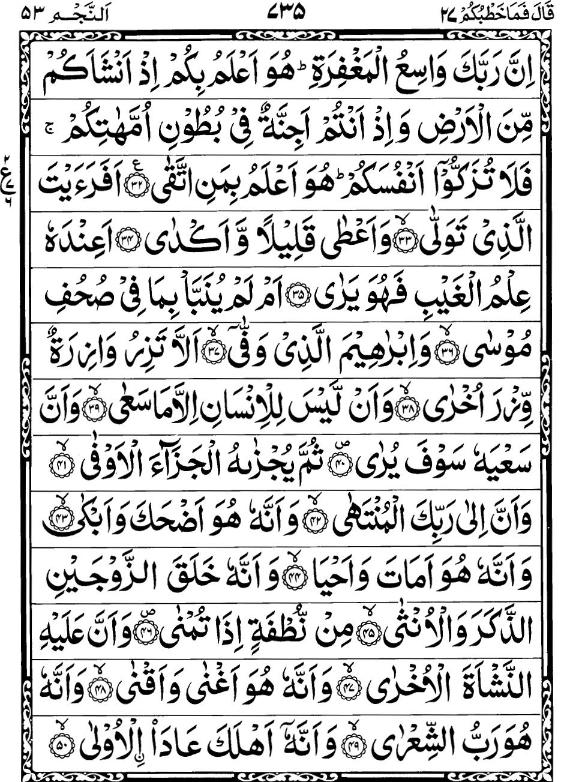 قَالَ فَمَا خَطْبُكُمْ ٢٧ ٧٣٥ اَلنَّجْم ٥٣
اِنَّ رَبَّكَ وَاسِعُ الْمَغْفِرَةِ ؕ هُوَ اَعْلَمُ بِكُمْ اِذْ اَنْشَاَكُمْ
مِّنَ الْاَرْضِ وَاِذْ اَنْتُمْ اَجِنَّةٌ فِیْ بُطُوْنِ اُمَّهٰتِكُمْ ۚ
فَلَا تُزَكُّوْۤا اَنْفُسَكُمْ ؕ هُوَ اَعْلَمُ بِمَنِ اتَّقٰی ﴿٣٢﴾ اَفَرَءَیْتَ
الَّذِیْ تَوَلّٰی ﴿٣٣﴾ وَاَعْطٰی قَلِیْلًا وَّاَكْدٰی ﴿٣٤﴾ اَعِنْدَهٗ
عِلْمُ الْغَیْبِ فَهُوَ یَرٰی ﴿٣٥﴾ اَمْ لَمْ یُنَبَّاْ بِمَا فِیْ صُحُفِ
مُوْسٰی ﴿٣٦﴾ وَاِبْرٰهِیْمَ الَّذِیْ وَفّٰۤی ﴿٣٧﴾ اَلَّا تَزِرُ وَازِرَةٌ
وِّزْرَ اُخْرٰی ﴿٣٨﴾ وَاَنْ لَّیْسَ لِلْاِنْسَانِ اِلَّا مَا سَعٰی ﴿٣٩﴾ وَاَنَّ
سَعْیَهٗ سَوْفَ یُرٰی ﴿٤٠﴾ ثُمَّ یُجْزٰىهُ الْجَزَآءَ الْاَوْفٰی ﴿٤١﴾
وَاَنَّ اِلٰی رَبِّكَ الْمُنْتَهٰی ﴿٤٢﴾ وَاَنَّهٗ هُوَ اَضْحَكَ وَاَبْكٰی ﴿٤٣﴾
وَاَنَّهٗ هُوَ اَمَاتَ وَاَحْیَا ﴿٤٤﴾ وَاَنَّهٗ خَلَقَ الزَّوْجَیْنِ
الذَّكَرَ وَالْاُنْثٰی ﴿٤٥﴾ مِنْ نُّطْفَةٍ اِذَا تُمْنٰی ﴿٤٦﴾ وَاَنَّ عَلَیْهِ
النَّشْاَةَ الْاُخْرٰی ﴿٤٧﴾ وَاَنَّهٗ هُوَ اَغْنٰی وَاَقْنٰی ﴿٤٨﴾ وَاَنَّهٗ
هُوَ رَبُّ الشِّعْرٰی ﴿٤٩﴾ وَاَنَّهٗۤ اَهْلَكَ عَادَا ۨالْاُوْلٰی ﴿٥٠﴾